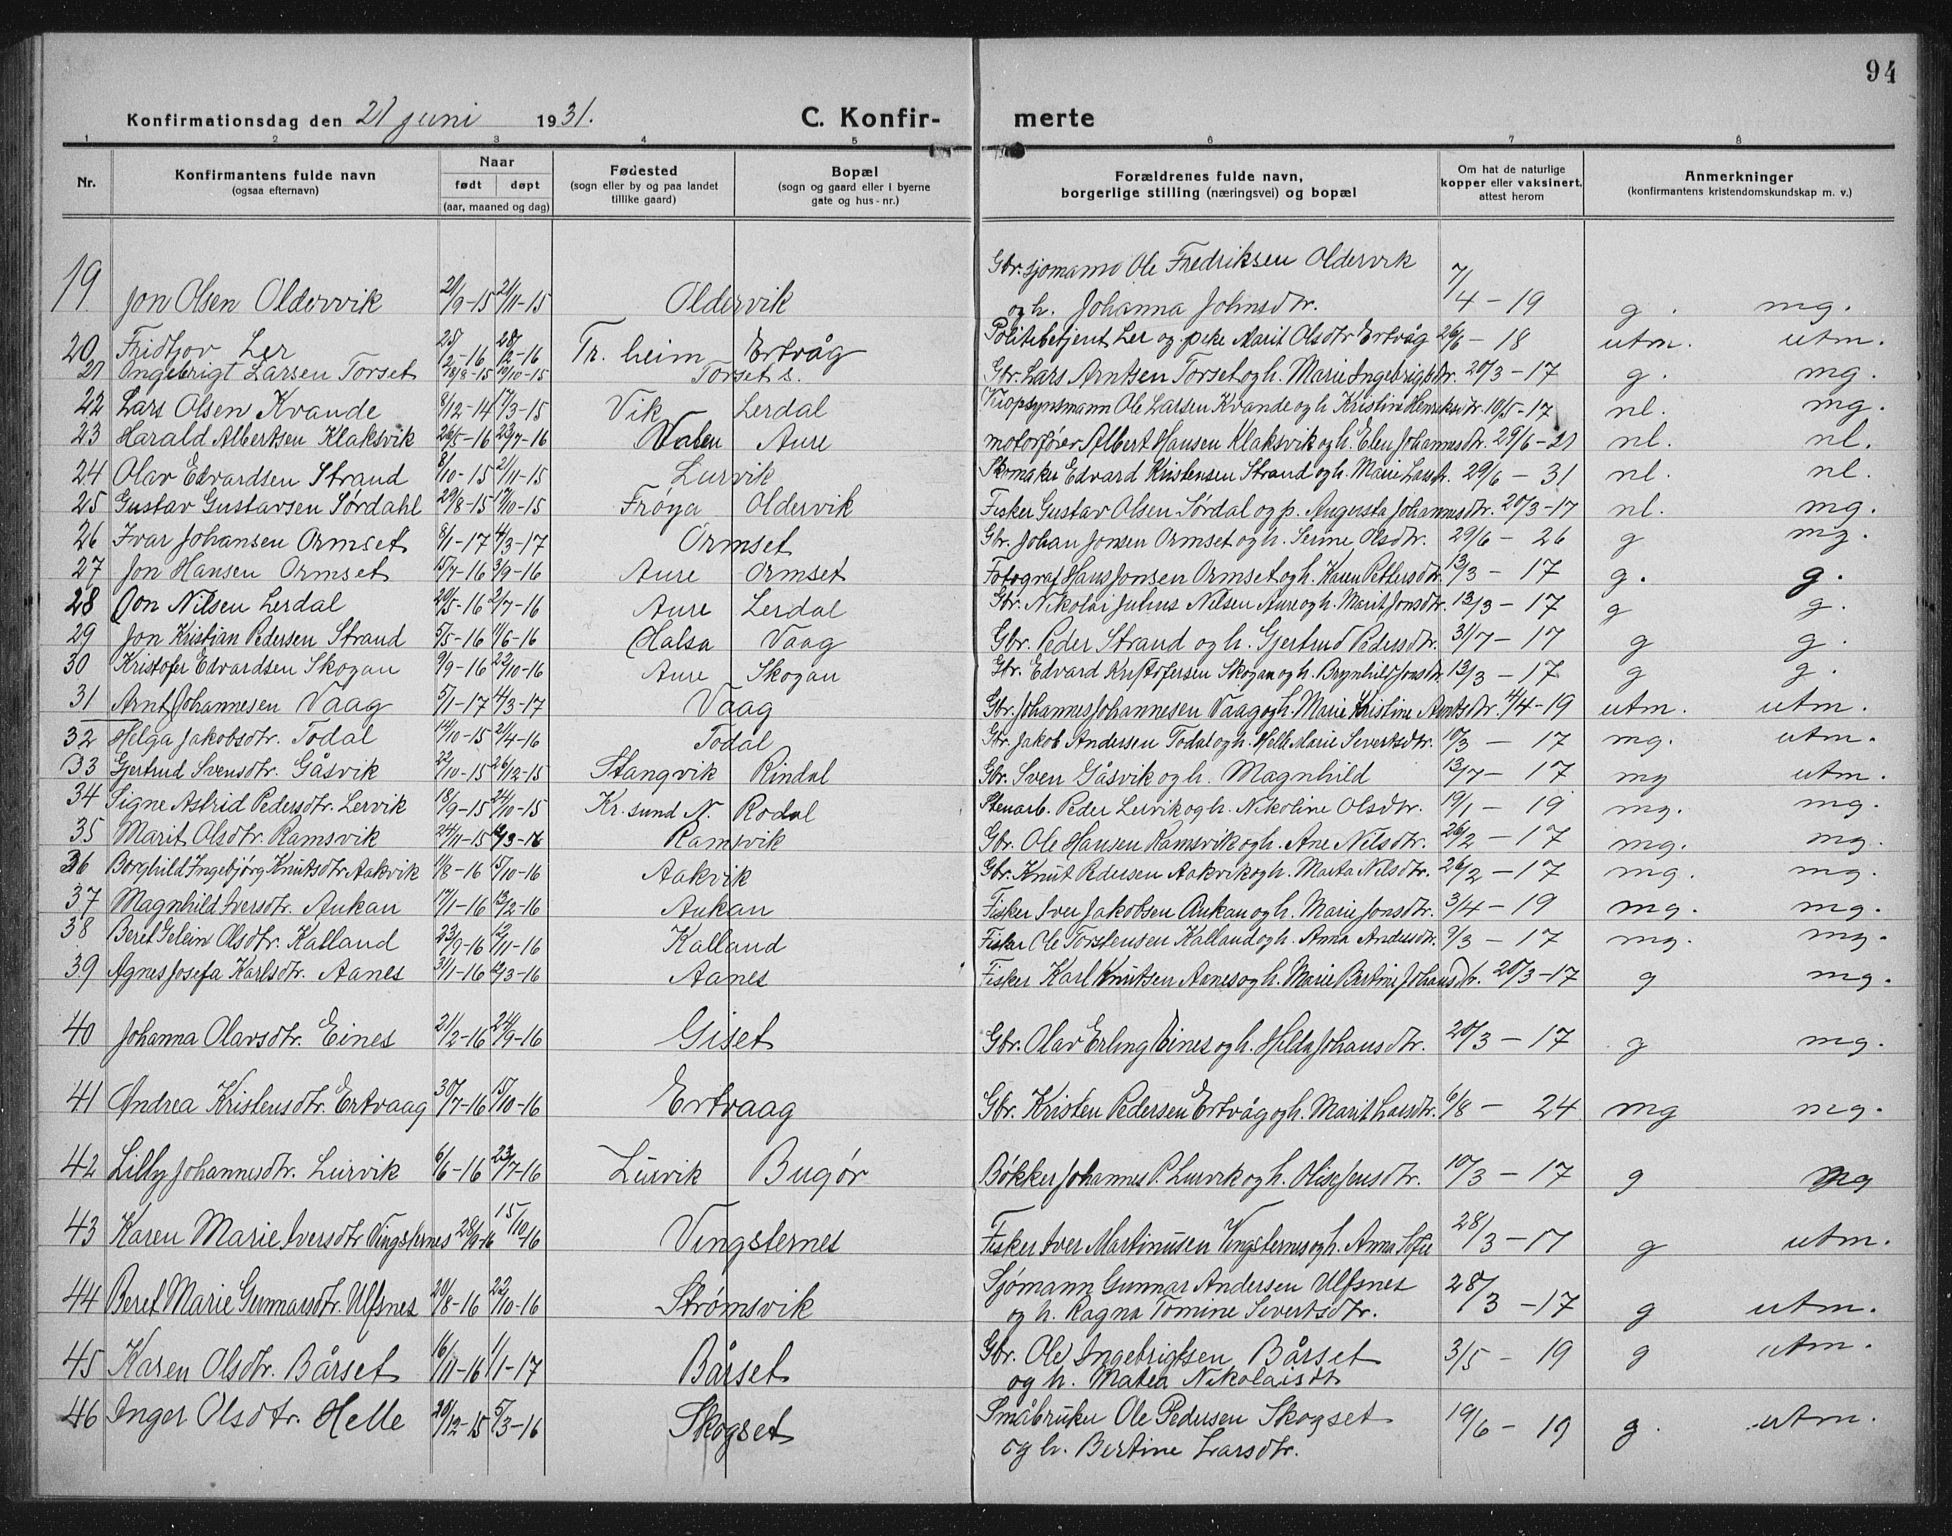 94
Konfirmationsdag den 21 juni 1931. C. Konfir- merte
1 2 3 4 5 6 7 8
Nr. Konfirmantens fulde navn (ogsaa efternavn) Naar født døpt (aar, maaned og dag) Fødested (sogn eller by og paa landet tillike gaard) Bopæl (sogn og gaard eller i byerne gate og hus-nr.) Forældrenes fulde navn, borgerlige stilling (næringsvei) og bopæl Om hat de naturlige kopper eller vaksinert. attest herom Anmerkninger (konfirmantens kristendomskundskap m. v.)
19. Jon Olsen Oldervik 21/9-15 21/11-15 Oldervik Gbr. sjømann Ole Fredriksen Oldervik og h. Johanna Johnsdtr. 7/4-19 g. mg.
20 Fridtjov Ler 28/12-16 Tr. heim Ertvåg Politibetjent Ler og pike Marit Olsdtr Ertvåg 26/6-18 utm. utm.
21 Ingebrigt Larsen Torset 28/8-15 10/10-15 Torset s. Gbr. Lars Arntsen Torset og h. Marie Ingebrigtsdtr. 20/3-17 g. mg.
22 Lars Olsen Kvande 8/12-14 17/3-15 Vik Lerdal Ole Larsen Kvande og h. Kristine Henriksdtr. 10/5-17 nl. mg.
23 Harald Albertsen Klaksvik 26/5-16 23/7-16 Valen Aure motorfører Albert Hansen Klaksvik og h. Elen Johannesdtr. 29/6-21 nl. nl.
24 Olav Edvardsen Strand 8/10-15 21/11-15 Lurvik Skomaker Edvard Kristensen Strand og h. Marie Larsdtr. 29/6-31 nl. nl.
25 Gustav Gustavsen Sørdahl 29/8-15 17/10-15 Frøya Oldervik Fisker Gustav Olsen Sørdal og p. Augusta Johannesdtr. 20/3-17 nl. mg.
26 Ivar Johansen Ormset 8/1-17 4/3-17 Ormset Gbr. Johan Jonsen Ormset og h. Serine Olsdtr. 29/6-26 g mg.
27 Jon Hansen Ormset 15/7-16 3/9-16 Aure Ormset Fotograf Hans Jonsen Ormset og h. Karen Pettersdtr. 13/3-17 g. g.
28 Jon Nilsen Lerdal 20/5-16 2/7-16 Aure Lerdal Gbr. Nikolai Julius Nilsen Aure og h. Marit Jonsdtr. 13/3-17 g g.
29 Jon Kristian Pedersen Strand 5/5-16 11/6-16 Halsa Vaag Gbr. Peder Strand og h. Gjertrud Pedersdtr. 31/7-17 g g.
30 Kristofer Edvardsen Skogan 9/9-16 22/10-16 Aure Skogan Gbr. Edvard Kristofersen Skogan og h. Brynhild Jonsdtr 13/3-17 g g.
31 Arnt Johannesen Vaag 5/1-17 4/3-17 Vaag Gbr. Johannes Johannesen Vaag og h. Marie Kristine Arntsdtr. 4/4-19 utm. utm.
32 Helga Jakobsdtr. Todal 14/10-15 2/4-16 Todal Gbr. Jakob Andersen Todal og h. Helle Marie Sivertsdtr. 10/3-17 mg. utm.
33 Gjertrud Svensdtr. Gåsvik 22/10-15 26/12-15 Stangvik Rindal Gbr. Sven Gåsvik og h. Magnhild 13/7-17 mg utm.
34 Signe Astrid Pedersdtr. Lervik 18/9-15 24/10-15 Kr. sund N. Rodal Stenarb. Peder Lervik og h. Nikoline Olsdtr. 19/1-19 mg. mg.
35 Marit Olsdtr. Ramsvik 24/11-15 12/3-16 Ramsvik Gbr. Ole Hansen Ramsvik og h. Ane Nilsdtr. 26/2-17 mg. mg.
36 Borghild Ingebjørg Knutsdtr. Aakvik 11/8-16 15/10-16 Aakvik Gbr. Knut Pedersen Aakvik og h. Marta Nilsdtr. 26/2-17 mg. mg.
37 Magnhild Iversdtr. Aukan 17/1-16 13/2-16 Aukan Fisker Iver Jakobsen Aukan og h. Marie Jonsdtr. 3/4-19 mg. mg.
38 Beret Gelein Olsdtr. Kalland 23/9-16 12/11-16 Kalland Fisker Ole Torstensen Kalland og h. Anna Andersdtr. 9/3-17 mg. mg.
39 Agnes Josefa Karlsdtr. Aanes 31/1-16 12/3-16 Aanes Fisker Karl Knutsen Aanes og h. Marie Bertine Johansdtr. 20/3-17 g mg.
40 Johanna Olavsdtr. Eines 21/2-16 24/9-16 Giset Gbr. Olav Erling Eines og h. Hilda Johansdtr. 20/3-17 g mg.
41 Andrea Kristensdtr. Ertvaag 30/7-16 15/10-16 Ertvaag Gbr. Kristen Pedersen Ertvåg og h. Marit Larsdtr. 6/8-24 mg mg.
42 Lilly Johannesdtr. Lurvik 6/6-16 23/7-16 Lurvik Bugør Bøkker Johannes P. Lurvik og h. Olise Jensdtr. 10/3-17 g mg
43 Karen Marie Iversdtr Vingsternes 28/9-16 15/10-16 Vingsternes Fisker Iver Martinusen Vingsternes og h. Anna Sofie 28/3-17 g utm.
44 Beret Marie Gunnarsdtr. Ulfsnes 20/8-16 22/10-16 Strømsvik Sjømann Gunnar Andersen Ulfsnes og h. Ragna Tomine Sivertsdtr. 28/3-17 g utm.
45 Karen Olsdtr. Bårset 16/11-16 1/1-17 Bårset Gbr. Ole Ingebrigtsen Bårset og h. Matea Nikolaisdt 3/5-19 g utm.
46 Inger Olsdtr. Helle 20/12-15 5/3-16 Skogset Småbruker Ole Pedersen Skogset og h. Bertine Larsdtr. 19/6-19 g. utm.